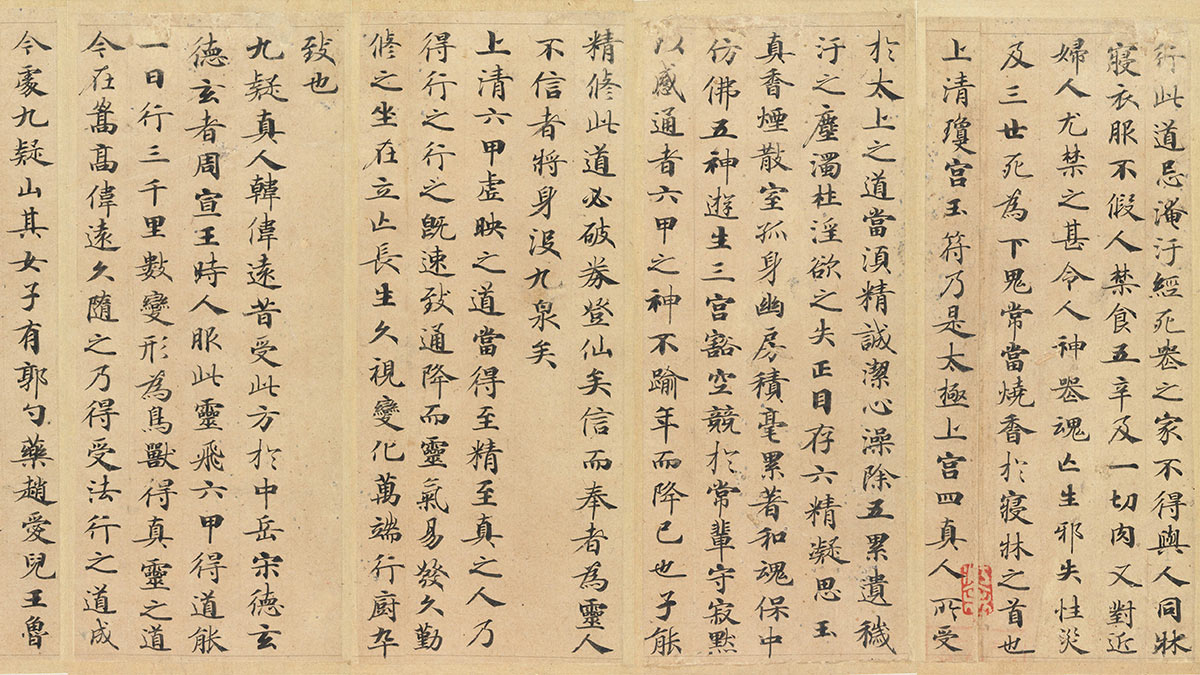 行此道忌淹汙經死喪之家不得與人同牀
寢衣服不假人禁食五辛及一切肉又對近
婦人尤禁之甚令人神喪魂亡生邪失性災
及三世死為下鬼常當燒香於寢牀之首也
上清瓊宮玉符乃是太極上宮四真人所受
於太上之道當須精誠潔心澡除五累遺穢
汙之塵濁杜淫欲之失正目存六精凝思玉
真香煙散室孤身幽房積毫累著和魂保中
仿佛五神遊生三宮豁空競於常輩守寂默
以感通者六甲之神不踰年而降已也子能
精修此道必破券登仙矣信而奉者為靈人
不信者將身沒九泉矣
上清六甲虛映之道當得至精至真之人乃
得行之行之既速致通降而靈氣易發久勤
修之坐在立亡長生久視變化萬端行廚卒
致也
九疑真人韓偉遠昔受此方於中岳宋德玄
德玄者周宣王時人服此靈飛六甲得道能
一日行三千里數變形為鳥獸得真靈之道
今在嵩高偉遠久隨之乃得受法行之道成
今處九疑山其女子有郭勺藥趙愛兒王魯